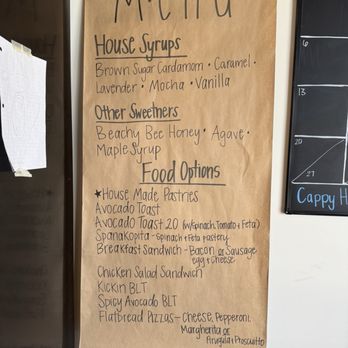 Menu
House Syrups
Brown Sugar Cardamom • Caramel •
Lavender • Mocha • Vanilla
Other Sweetners
Beachy Bee Honey • Agave •
Maple Syrup
Food Options
★House Made Pastries
Avocado Toast
Avocado Toast 2.0 (w/Spinach, Tomato + Feta)
Spanakopita - Spinach + Feta pastery
Breakfast Sandwich - Bacon or Sausage
egg + cheese
Chicken Salad Sandwich
Kickin BLT
Spicy Avocado BLT
Flatbread Pizzas - Cheese, Pepperoni,
Margherita or
Arugula + Prosciutto
6
13
20
27
Cappy H